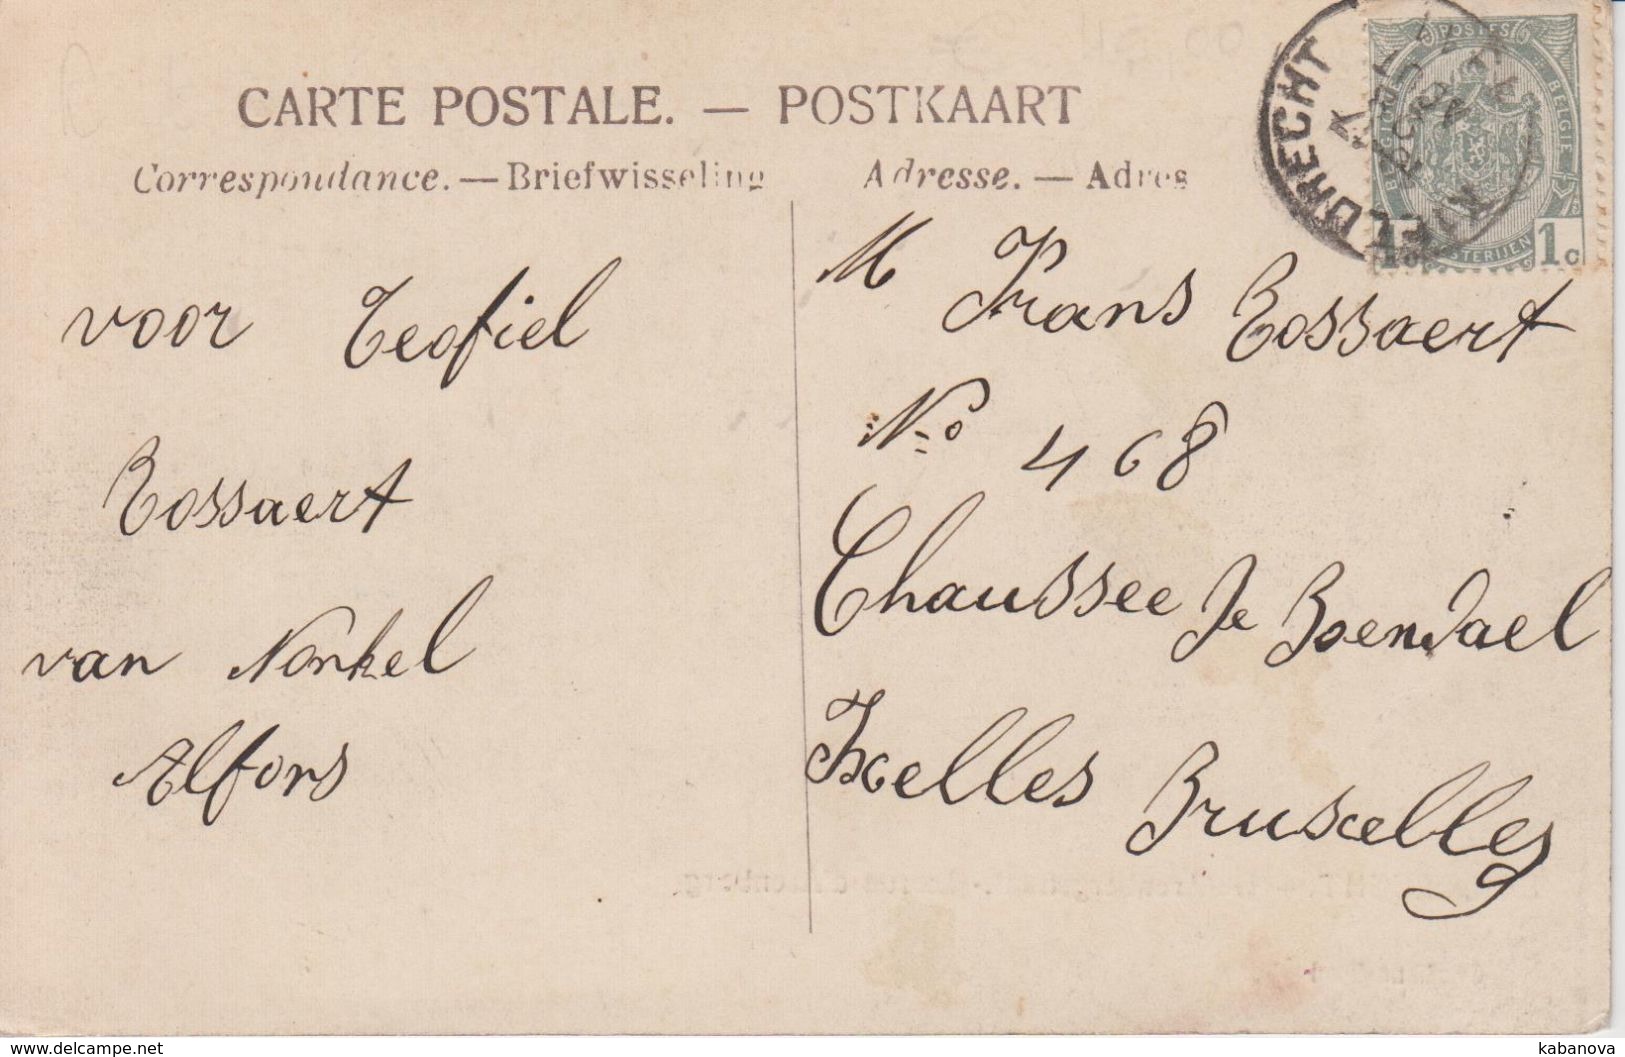 CARTE POSTALE. — POSTKAART
Correspondance. — Briefwisseling
Adresse. — Adres
voor Teofiel
Bossaert
van Nonkel
Alfons
M Frans Bossaert
No 468
Chaussee de Boendael
Ixelles Bruxelles
KIELDRECHT
POSTES
BELGIQUE
BELGIE
POSTERIJEN
1c
www.delcampe.net
kabanova